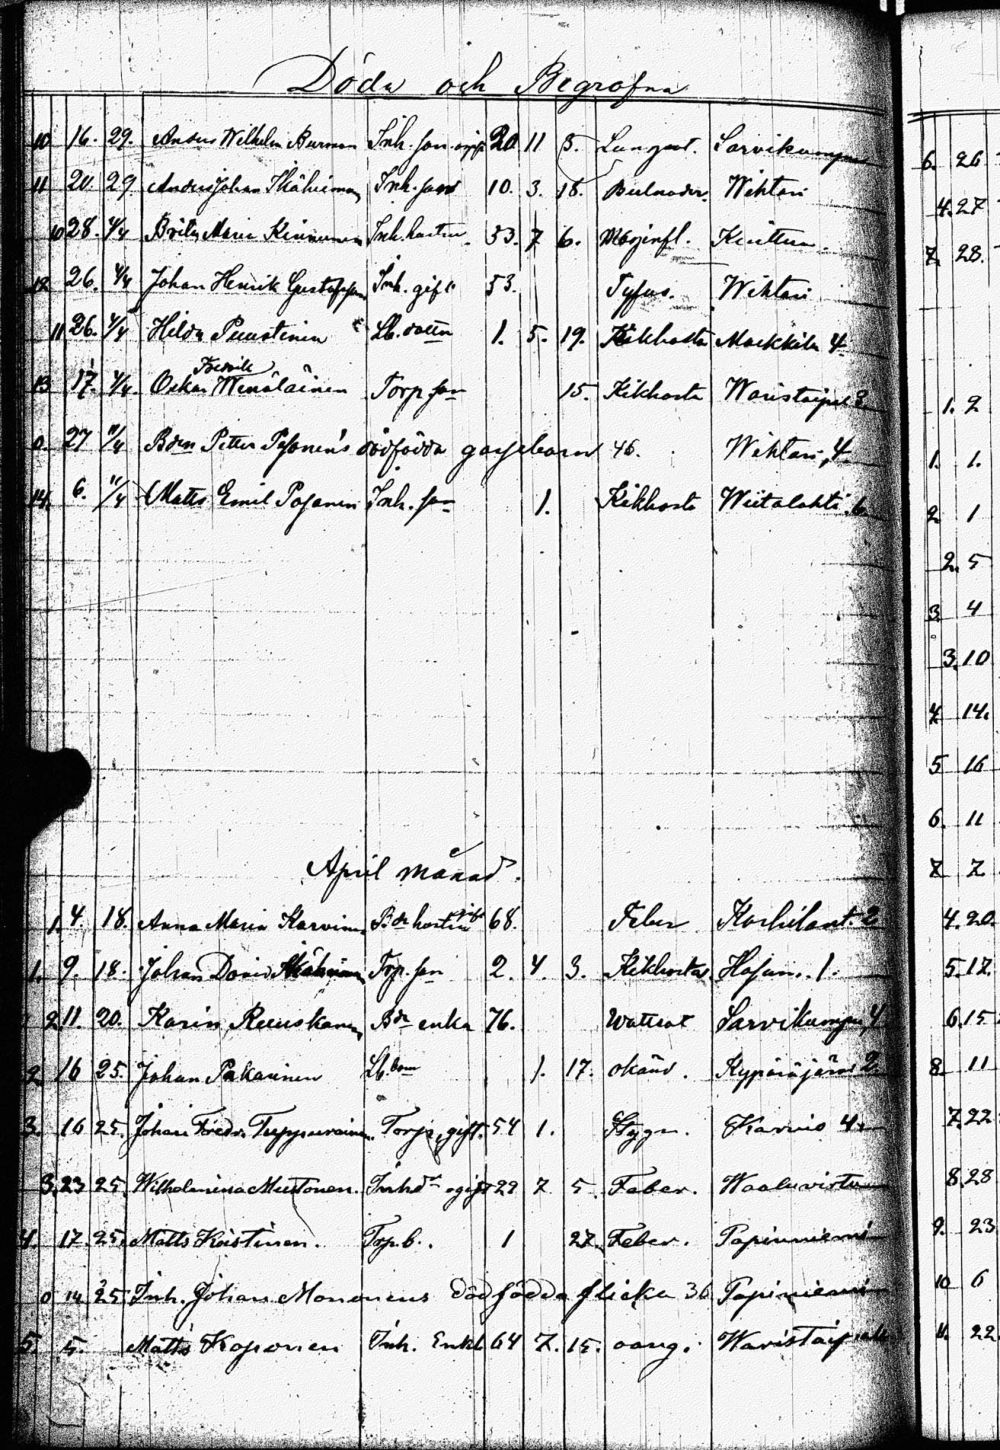 Döda och Begrafna
10 16. 29. Anders Wilhelm Burman Inh. son ogift 20 11 5. Lungsot. Sarvikumpu
11 20 29 Anders Johan Inh. son 10. 3. 18. Wihtari
10 28. 4/4 Brita Maria Kinnunen Inh. hustru 53. 7 6. Kuittua.
12 26. 4/4 Johan Henrik Gustafsson Inh. gift 53. Tyfus. Wihtari
11 26. 4/4 Hilda Puustinen Lb. dotter 1. 5. 19. Kikhosta Markkila 4
13 17. 4/4. Oskar Fredrik Wenäläinen Torp. son 15. Kikhosta Waristaipal 3
0. 27 11/4 Bden Petter Pesonens dödfödda gossebarn 46. Wihtari, 4.
14. 6. 11/4 Matts Emil Posanen Inh. son 1. Kikhosta Wiitalahti 6
April månad.
1. 4. 18. Anna Maria Karvinen Bde hustru gift 68. Feber 2
1. 9. 18. Johan David Torp. son 2. 4. 3. Kikhosta 1.
2 11. 20. Karin Ruuskanen Bde enka 76. Wattsot Sarvikumpu 4
2 16 25. Johan Pakarinen Lb. son 1. 17. okänd. Kypäräjärvi 2.
3. 16 25. Johan Fredr. Tuppurainen. Torp. gift. 54 1. Stygn. Karvio 4.
3. 23 25. Wilhelmina Mustonen. Inhd. ogift 29 7 5. Feber. Waaluvirta
4. 17. 25. Matts Koistinen. Torp. b. 1 27. Feber. Papinniemi
0 14 25 Inh. Johan Monanens dödfödda flicka 36 Papinniemi
5 5. Matts Koponen Inh. Enkl. 64 7. 15. Waristaipale
6. 26
4. 27
7. 28.
1. 2
1. 1.
2. 1
2. 5
3. 4
3. 10
4. 14.
5 16
6. 11
7 7
4. 20.
5. 17.
6. 15
8. 11
7. 22
8. 28
9. 23
10 6
11. 22